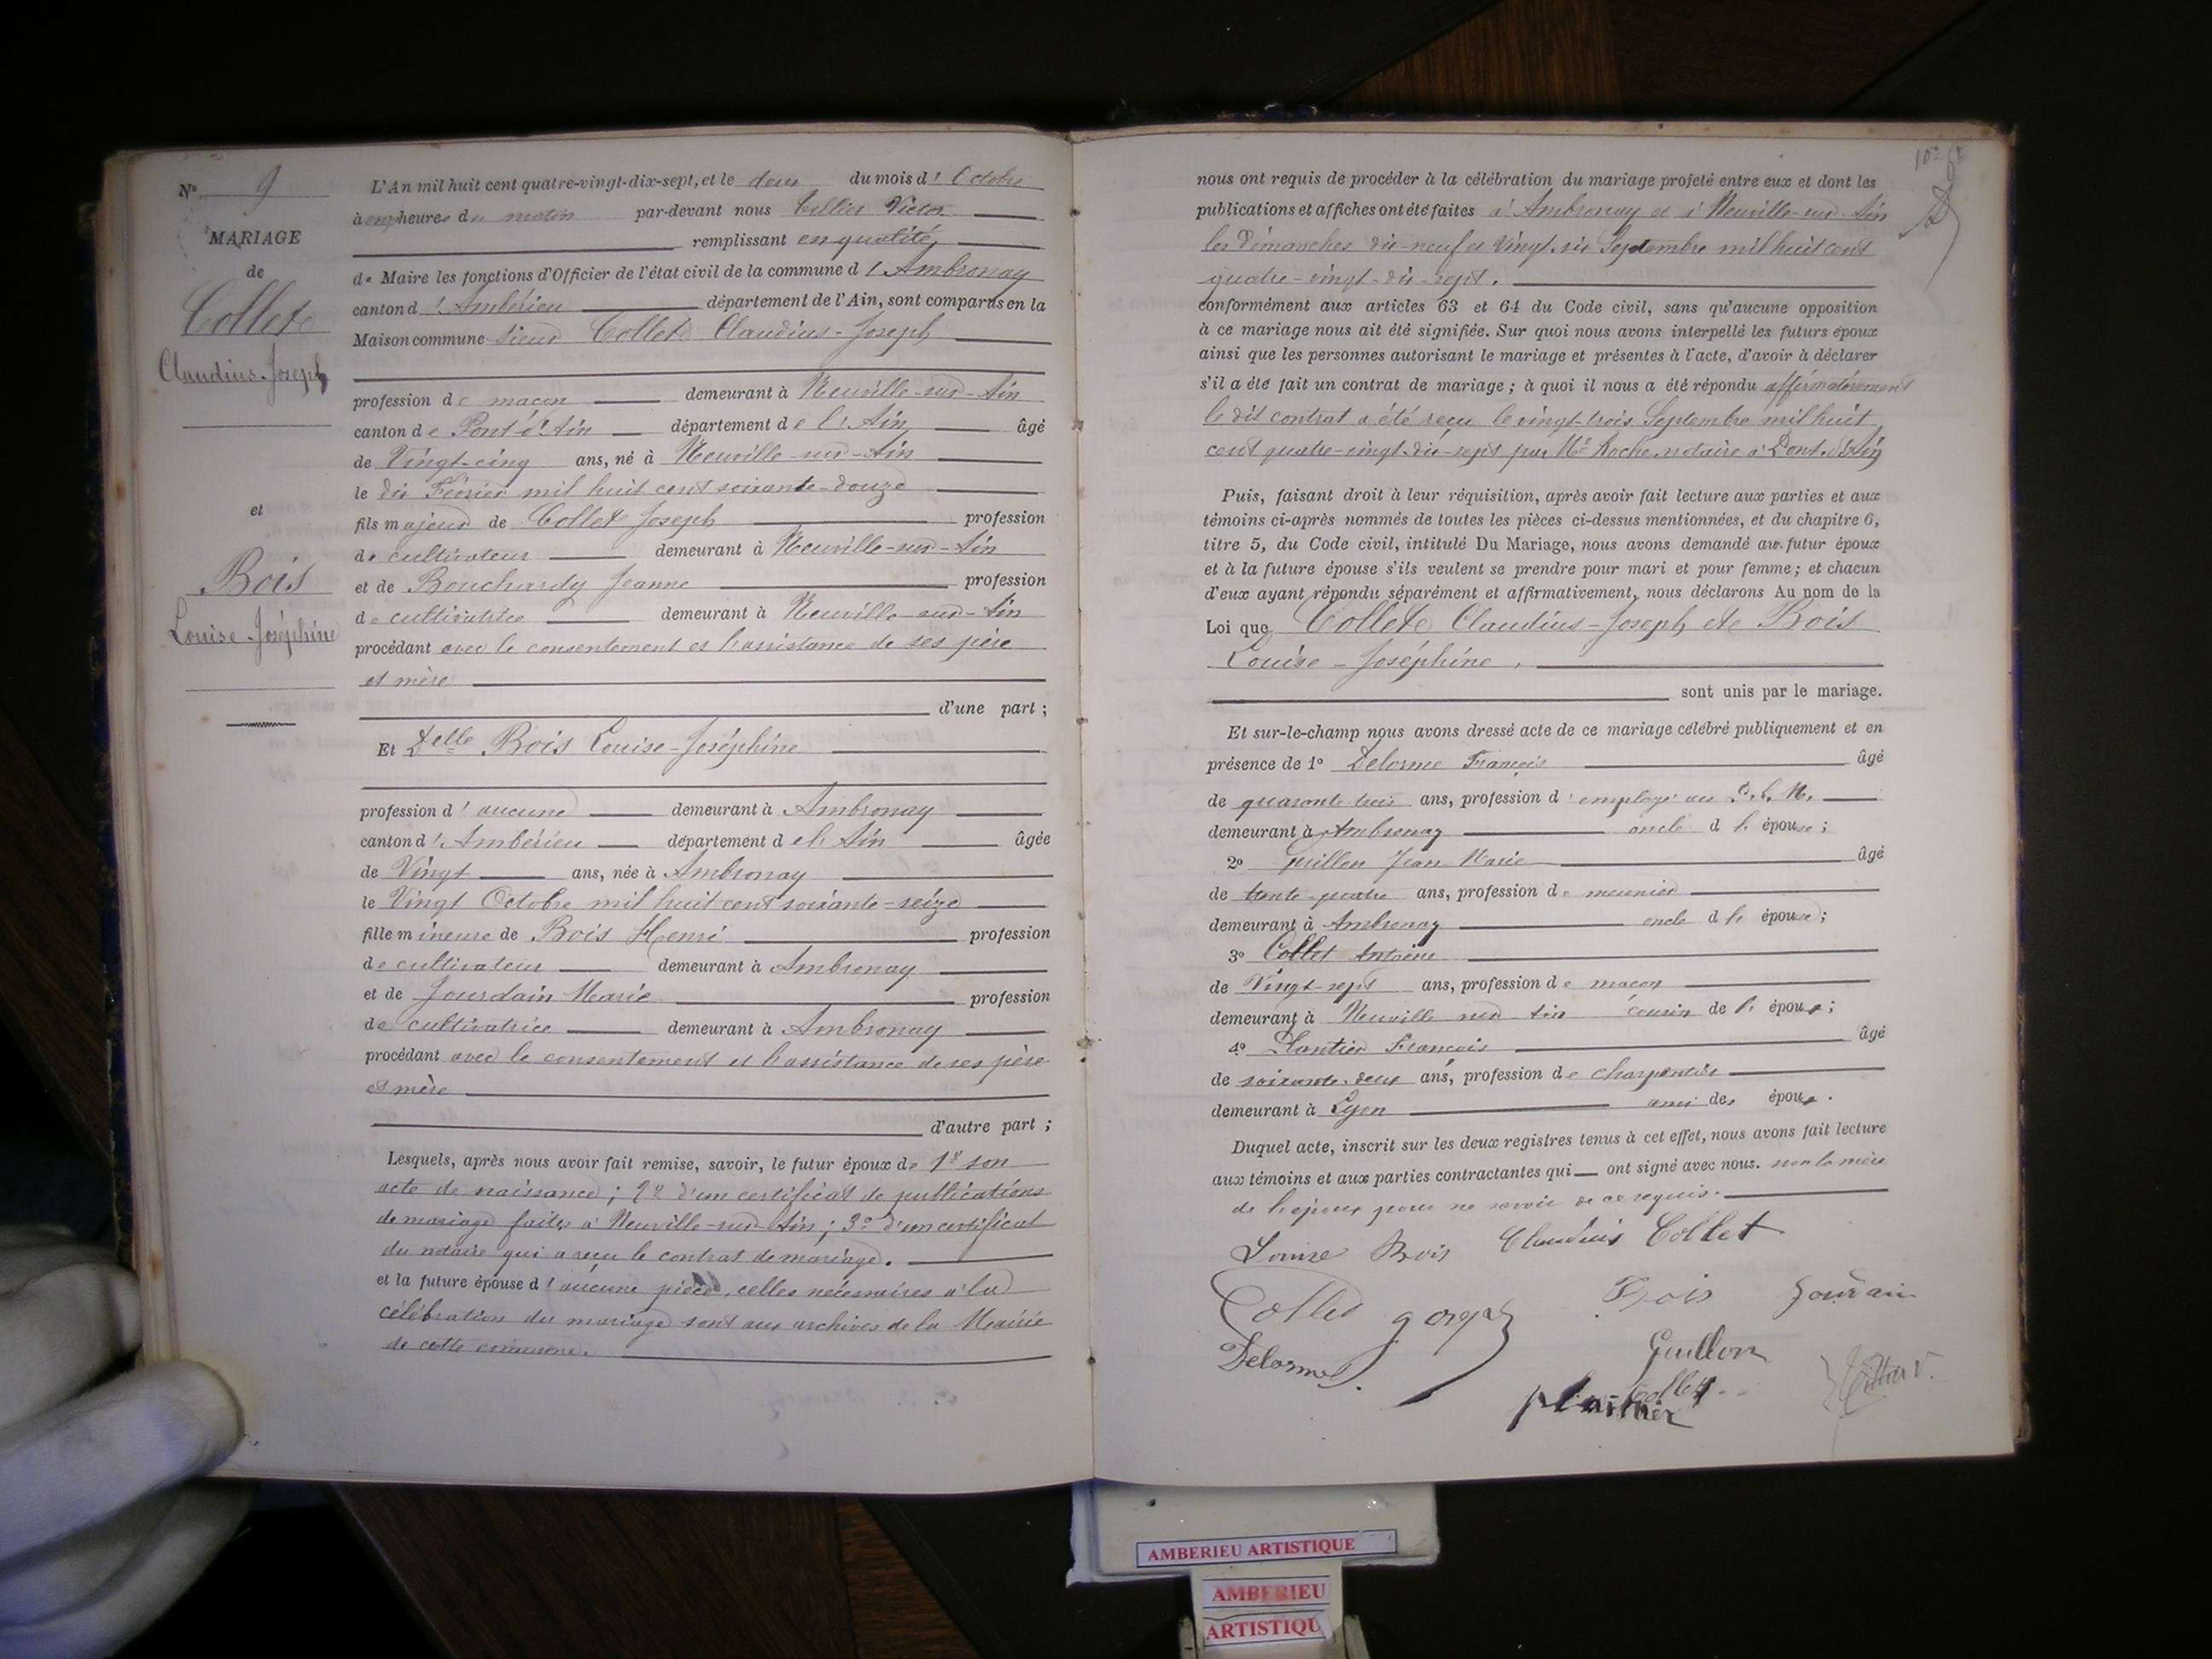 N° 9
MARIAGE
de
Collet
Claudius-Joseph
et
Bois
Louise-Joséphine
L'An mil huit cent quatre-vingt-dix-sept, et le deux du mois d'Octobre
à onze heures du matin par-devant nous Tillier Victor
remplissant en qualité
de Maire les fonctions d'Officier de l'état civil de la commune d'Ambronay
canton d'Ambérieu département de l'Ain, sont comparus en la
Maison commune Sieur Collet Claudius-Joseph
profession de maçon demeurant à Neuville-sur-Ain
canton de Pont d'Ain département de l'Ain âgé
de Vingt-cinq ans, né à Neuville-sur-Ain
le dix Février mil huit cent soixante-douze
fils majeur de Collet Joseph profession
de cultivateur demeurant à Neuville-sur-Ain
et de Bouchardy Jeanne profession
de cultivatrice demeurant à Neuville-sur-Ain
procédant avec le consentement et l'assistance de ses père
et mère
d'une part ;
Et Delle Bois Louise-Joséphine
profession d'aucune demeurant à Ambronay
canton d'Ambérieu département de l'Ain âgée
de Vingt ans, née à Ambronay
le Vingt Octobre mil huit cent soixante-seize
fille mineure de Bois Henri profession
de cultivateur demeurant à Ambronay
et de Jourdain Marie profession
de cultivatrice demeurant à Ambronay
procédant avec le consentement et l'assistance de ses père
et mère
d'autre part ;
Lesquels, après nous avoir fait remise, savoir, le futur époux de 1° son
acte de naissance ; 2° d'un certificat de publications
de mariage faites à Neuville-sur-Ain ; 3° d'un certificat
du notaire qui a reçu le contrat de mariage.
et la future épouse d'aucune pièce, celles nécessaires à la
célébration du mariage sont aux archives de la Mairie
de cette commune.
nous ont requis de procéder à la célébration du mariage projeté entre eux et dont les
publications et affiches ont été faites à Ambronay et à Neuville-sur-Ain
les Dimanches dix-neuf et Vingt-six Septembre mil huit cent
quatre-vingt-dix-sept.
conformément aux articles 63 et 64 du Code civil, sans qu'aucune opposition
à ce mariage nous ait été signifiée. Sur quoi nous avons interpellé les futurs époux
ainsi que les personnes autorisant le mariage et présentes à l'acte, d'avoir à déclarer
s'il a été fait un contrat de mariage ; à quoi il nous a été répondu affirmativement
le dit contrat a été reçu le vingt-trois Septembre mil huit
cent quatre-vingt-dix-sept par Me Roche, notaire à Pont-d'Ain
Puis, faisant droit à leur réquisition, après avoir fait lecture aux parties et aux
témoins ci-après nommés de toutes les pièces ci-dessus mentionnées, et du chapitre 6,
titre 5, du Code civil, intitulé Du Mariage, nous avons demandé au futur époux
et à la future épouse s'ils veulent se prendre pour mari et pour femme ; et chacun
d'eux ayant répondu séparément et affirmativement, nous déclarons Au nom de la
Loi que Collet Claudius-Joseph et Bois
Louise-Joséphine,
sont unis par le mariage.
Et sur-le-champ nous avons dressé acte de ce mariage célébré publiquement et en
présence de 1° Delorme François âgé
de quarante trois ans, profession d'employé au P. L. M.
demeurant à Ambronay oncle d l'épouse ;
2° Guillon Jean Marie âgé
de trente-quatre ans, profession de meunier
demeurant à Ambronay oncle d l'épouse ;
3° Collet Antoine
de Vingt-sept ans, profession de maçon
demeurant à Neuville sur Ain cousin de l'époux ;
4° Plantier François âgé
de soixante-deux ans, profession de charpentier
demeurant à Lyon ami des époux.
Duquel acte, inscrit sur les deux registres tenus à cet effet, nous avons fait lecture
aux témoins et aux parties contractantes qui ont signé avec nous. non la mère
de l'époux pour ne savoir de ce requis.
Louise Bois Claudius Collet
Collet
Bois
Delorme
Guillon
Collet
AMBERIEU ARTISTIQUE
AMBERIEU
ARTISTIQU